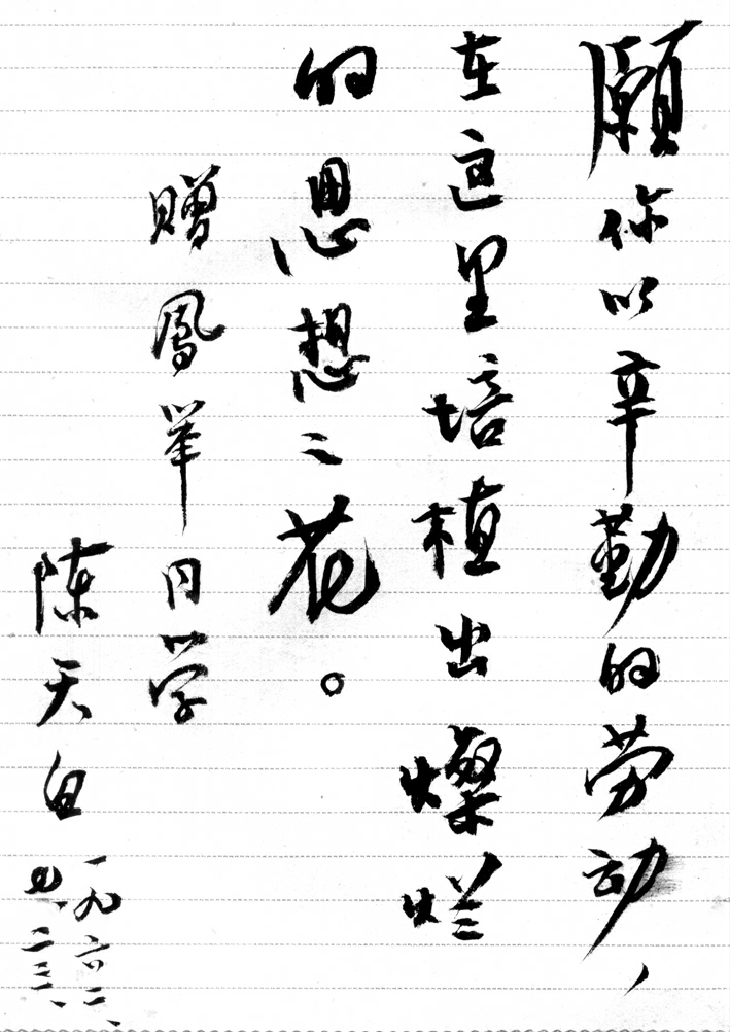 願你以辛勤的劳动，
在这里培植出燦烂
的思想之花。
贈鳳举同学
陈天白
一九六二、
四、二三、